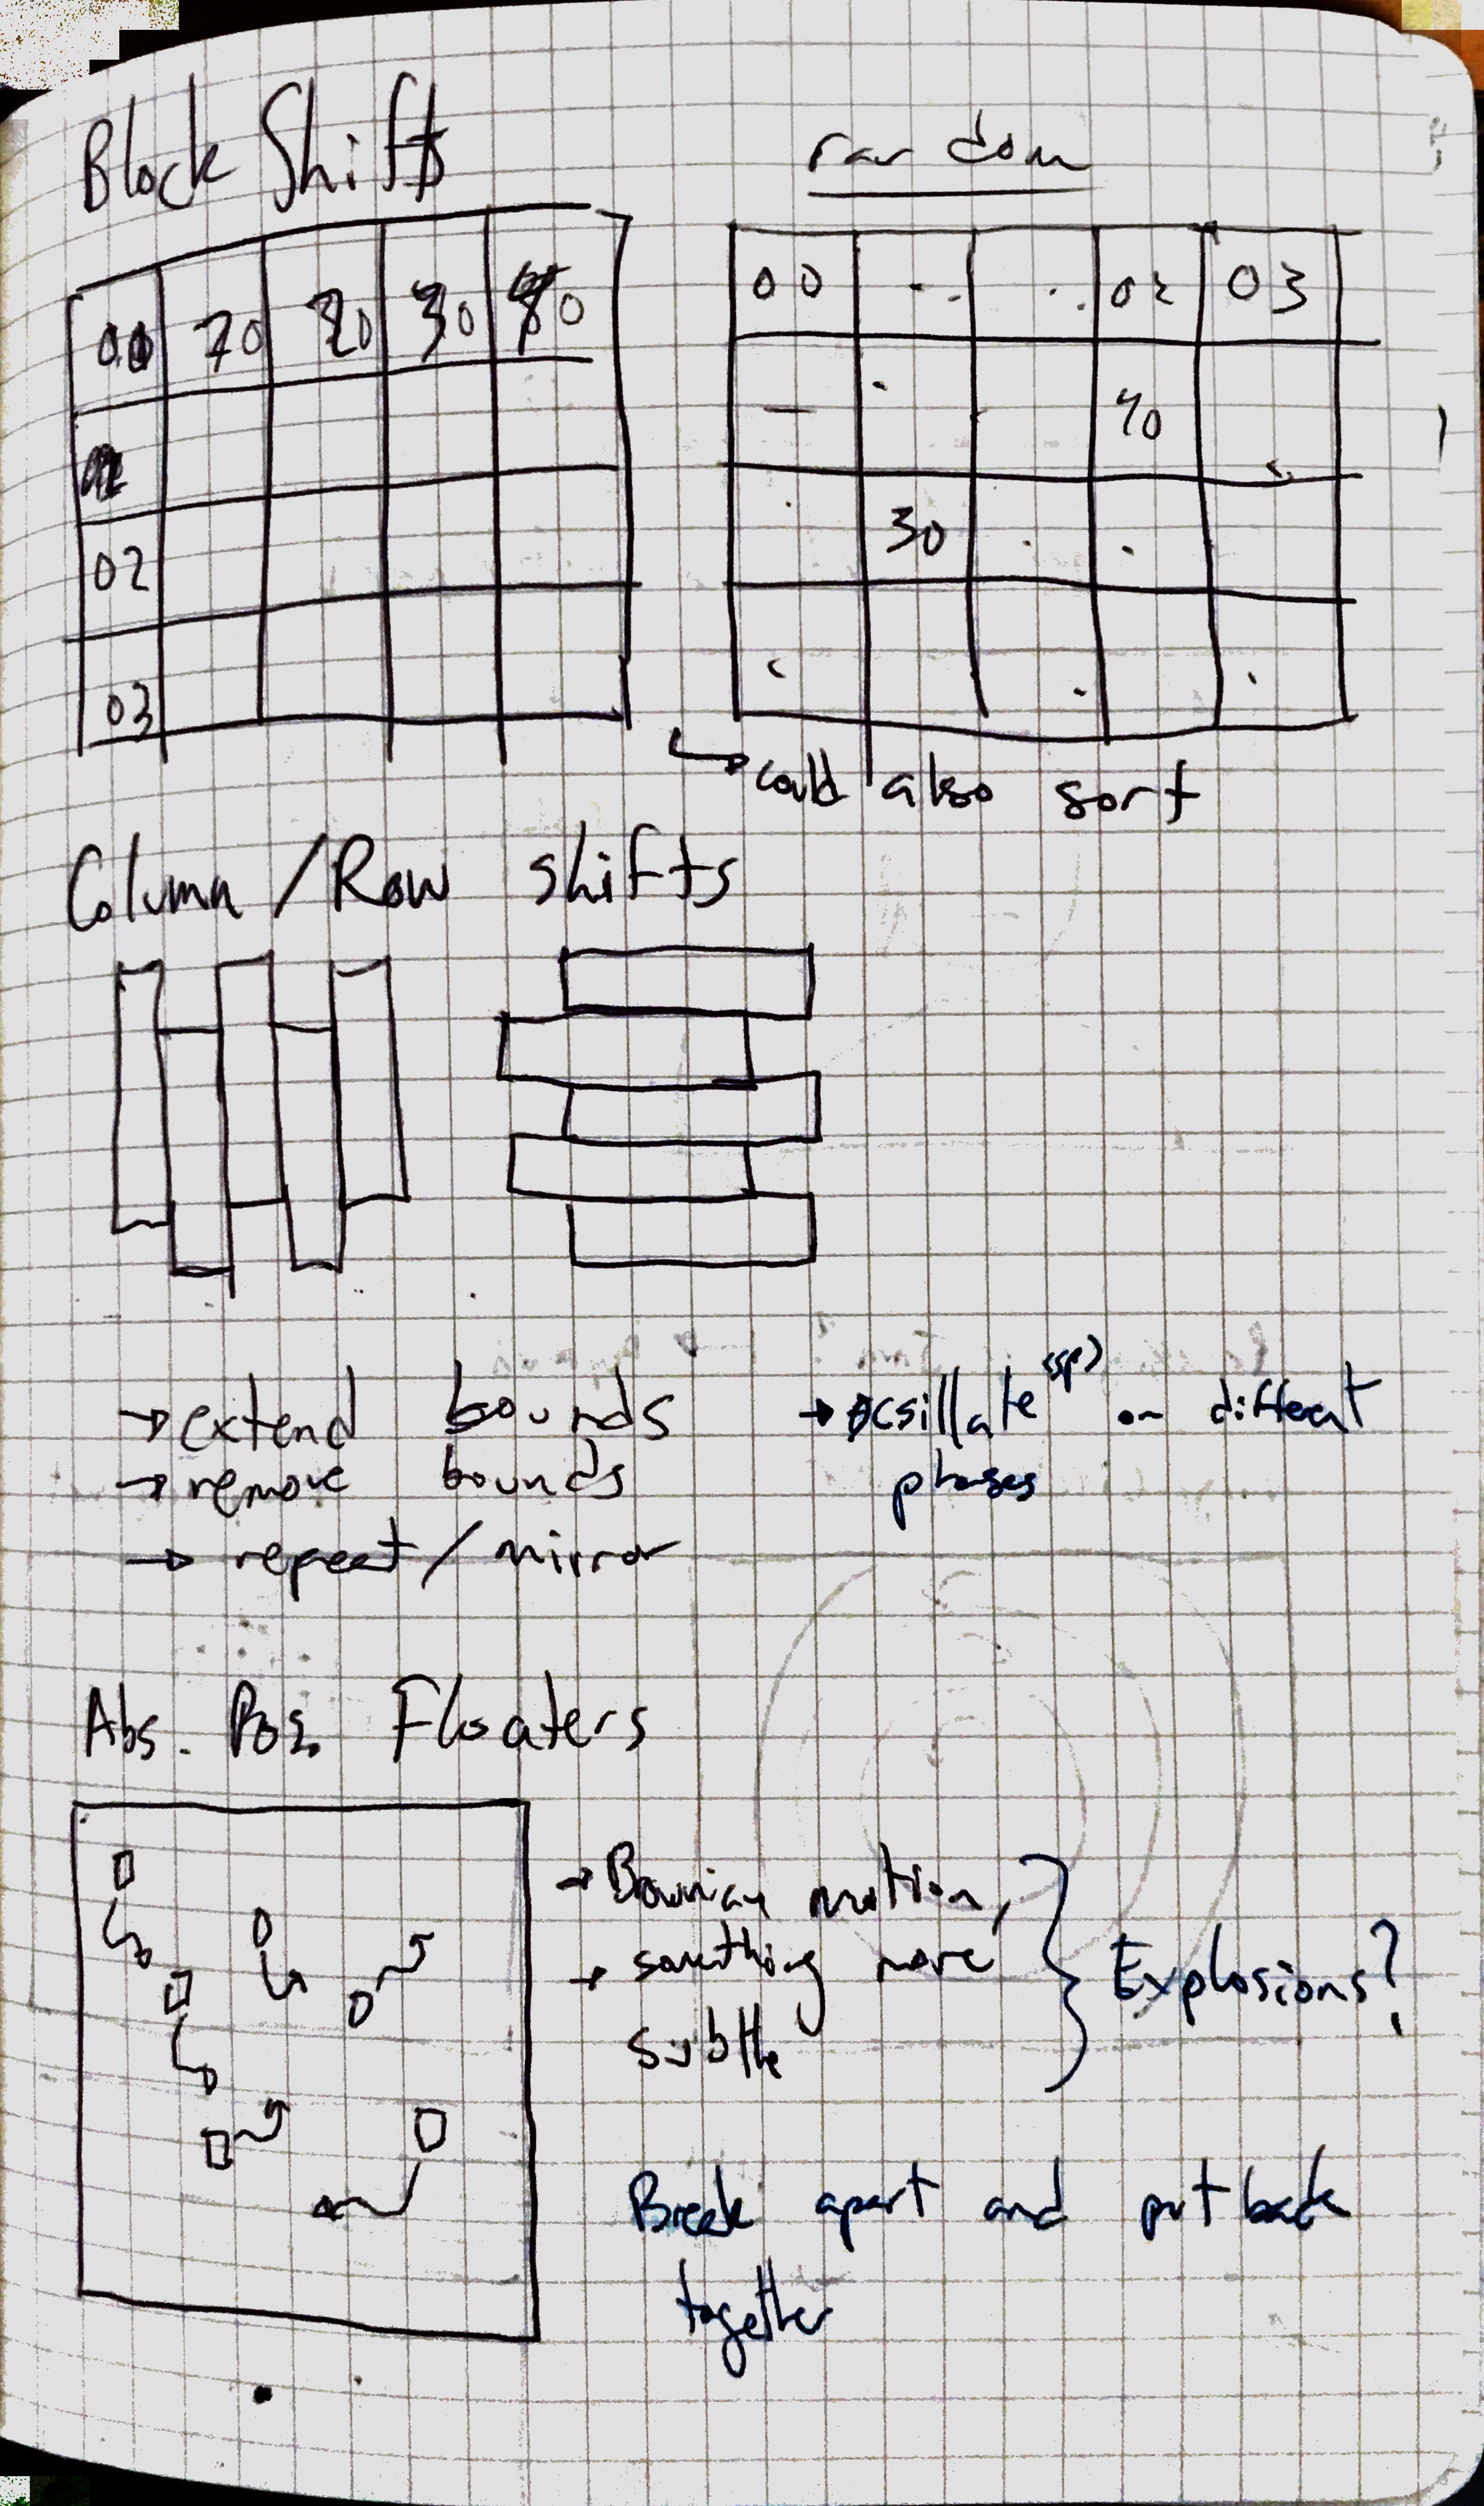 Block Shifts
random
00 70 20 30 40
02
03
00 .. .. 02 03
40
30
could also sort
Column / Row shifts
→ extend bounds
→ remove bounds
→ repeat / mirror
→ ocsillate (sp) on different
phases
Abs. Pos. Floaters
→ Brownian motion,
→ something more
subtle
Explosions?
Break apart and put back
together